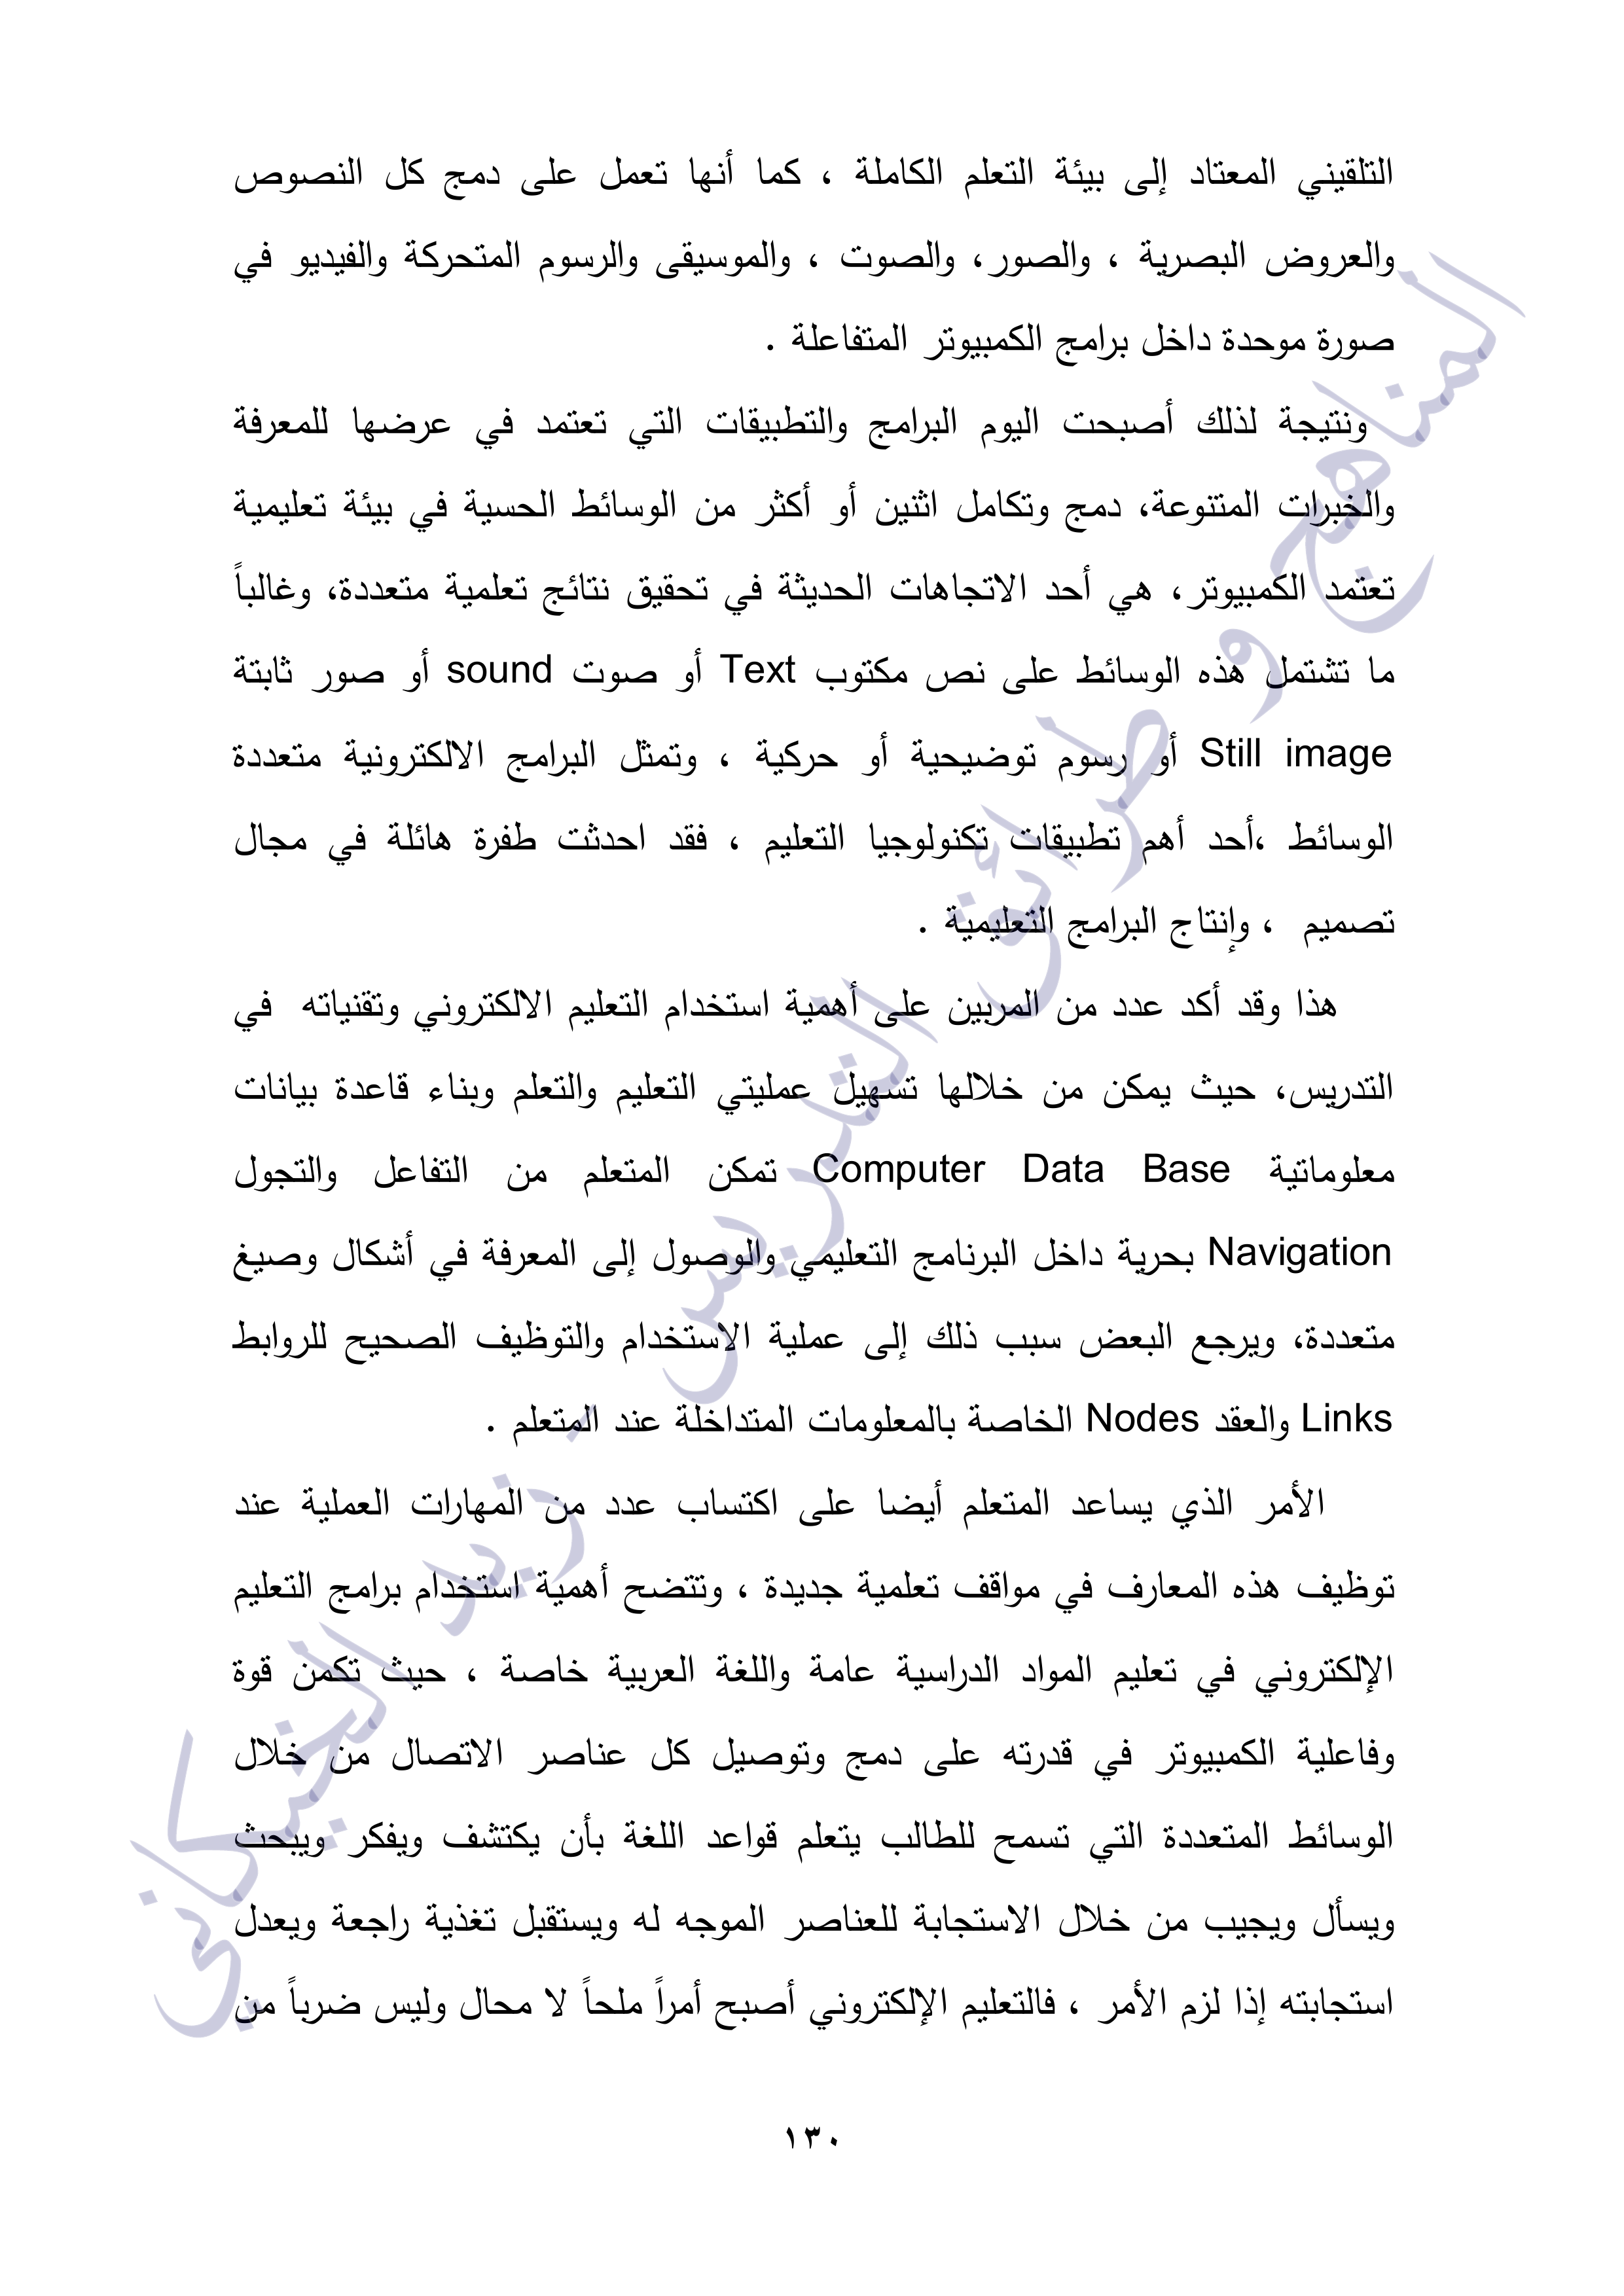 التلقيني المعتاد إلى بيئة التعلم الكاملة ، كما أنها تعمل على دمج كل النصوص
والعروض البصرية ، والصور، والصوت ، والموسيقى والرسوم المتحركة والفيديو في
صورة موحدة داخل برامج الكمبيوتر المتفاعلة .
ونتيجة لذلك أصبحت اليوم البرامج والتطبيقات التي تعتمد في عرضها للمعرفة
والخبرات المتنوعة، دمج وتكامل اثنين أو أكثر من الوسائط الحسية في بيئة تعليمية
تعتمد الكمبيوتر، هي أحد الاتجاهات الحديثة في تحقيق نتائج تعلمية متعددة، وغالباً
ما تشتمل هذه الوسائط على نص مكتوب Text أو صوت sound أو صور ثابتة
Still image أو رسوم توضيحية أو حركية ، وتمثل البرامج الالكترونية متعددة
الوسائط ،أحد أهم تطبيقات تكنولوجيا التعليم ، فقد احدثت طفرة هائلة في مجال
تصميم ، وإنتاج البرامج التعليمية .
هذا وقد أكد عدد من المربين على أهمية استخدام التعليم الالكتروني وتقنياته في
التدريس، حيث يمكن من خلالها تسهيل عمليتي التعليم والتعلم وبناء قاعدة بيانات
معلوماتية Computer Data Base تمكن المتعلم من التفاعل والتجول
Navigation بحرية داخل البرنامج التعليمي والوصول إلى المعرفة في أشكال وصيغ
متعددة، ويرجع البعض سبب ذلك إلى عملية الاستخدام والتوظيف الصحيح للروابط
Links والعقد Nodes الخاصة بالمعلومات المتداخلة عند المتعلم .
الأمر الذي يساعد المتعلم أيضا على اكتساب عدد من المهارات العملية عند
توظيف هذه المعارف في مواقف تعلمية جديدة ، وتتضح أهمية استخدام برامج التعليم
الإلكتروني في تعليم المواد الدراسية عامة واللغة العربية خاصة ، حيث تكمن قوة
وفاعلية الكمبيوتر في قدرته على دمج وتوصيل كل عناصر الاتصال من خلال
الوسائط المتعددة التي تسمح للطالب يتعلم قواعد اللغة بأن يكتشف ويفكر ويبحث
ويسأل ويجيب من خلال الاستجابة للعناصر الموجه له ويستقبل تغذية راجعة ويعدل
استجابته إذا لزم الأمر ، فالتعليم الإلكتروني أصبح أمراً ملحاً لا محال وليس ضرباً من
١٣٠
المناهج و طرائق التدريس - زيد الخيكاني